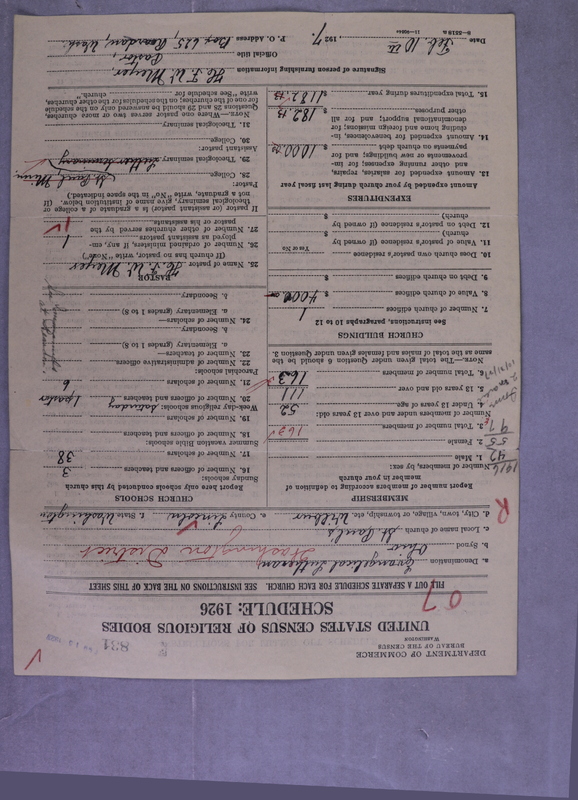 DEPARTMENT OF COMMERCE
BUREAU OF THE CENSUS
WASHINGTON
831
UNITED STATES CENSUS OF RELIGIOUS BODIES
SCHEDULE: 1926
FILL OUT A SEPARATE SCHEDULE FOR EACH CHURCH. SEE INSTRUCTIONS ON THE BACK OF THIS SHEET
a. Denomination Evangelical Lutheran
b. Synod Ohio Washington District
c. Local name of church St. Paul's
d. City, town, village, or township, etc. Wilbur e. County Lincoln f. State Washington
MEMBERSHIP
Report number of members according to definition of member in your church
Number of members, by sex:
1. Male
2. Female
3. Total number of members 163
Number of members under and over 13 years old:
4. Under 13 years of age 52
5. 13 years old and over 111
6. Total number of members 163
NOTE.—The total given under Question 6 should be the same as the total of males and females given under Question 3.
1916
42
55
97
CHURCH BUILDINGS
See instructions, paragraphs 10 to 12
7. Number of church edifices 1
8. Value of church edifices $ 4000.00
9. Debt on church edifices $
10. Does church own pastor's residence
Yes or No
11. Value of pastor's residence (if owned by church) $
12. Debt on pastor's residence (if owned by church) $
EXPENDITURES
Amount expended by your church during last fiscal year
13. Amount expended for salaries, repairs, and other running expenses; for improvements or new buildings; and for payments on church debt $ 1000.00
14. Amount expended for benevolences, including home and foreign missions; for denominational support; and for all other purposes $ 182.13
15. Total expenditures during year $ 1182.13
CHURCH SCHOOLS
Report here only schools conducted by this church
Sunday schools:
16. Number of officers and teachers 3
17. Number of scholars 38
Summer vacation Bible schools:
18. Number of officers and teachers
19. Number of scholars
Week-day religious schools: Saturday
20. Number of officers and teachers 1 pastor
21. Number of scholars 6
Parochial schools:
22. Number of administrative officers
23. Number of teachers—
a. Elementary (grades 1 to 8)
b. Secondary
24. Number of scholars—
a. Elementary (grades 1 to 8)
b. Secondary
PASTOR
25. Name of pastor H. F. W. Meyer
(If church has no pastor, write "None")
26. Number of ordained ministers, if any, employed as assistant pastors 1
27. Number of other churches served by the pastor or his assistants 1
If pastor (or assistant pastor) is a graduate of a college or theological seminary, give name of institution below. (If not a graduate, write "No" in the space indicated.)
Pastor:
28. College
29. Theological seminary Luther Seminary St. Paul Minn.
Assistant pastor:
30. College
31. Theological seminary
NOTE.—Where one pastor serves two or more churches, Questions 28 and 29 should be answered only on the schedule for one of the churches; on the schedules for the other churches, write "See schedule for church."
Signature of person furnishing information H. F. W. Meyer
Official title Pastor,
Date Feb. 10th, 1927. P. O. Address Box 625, Reardan, Wash.